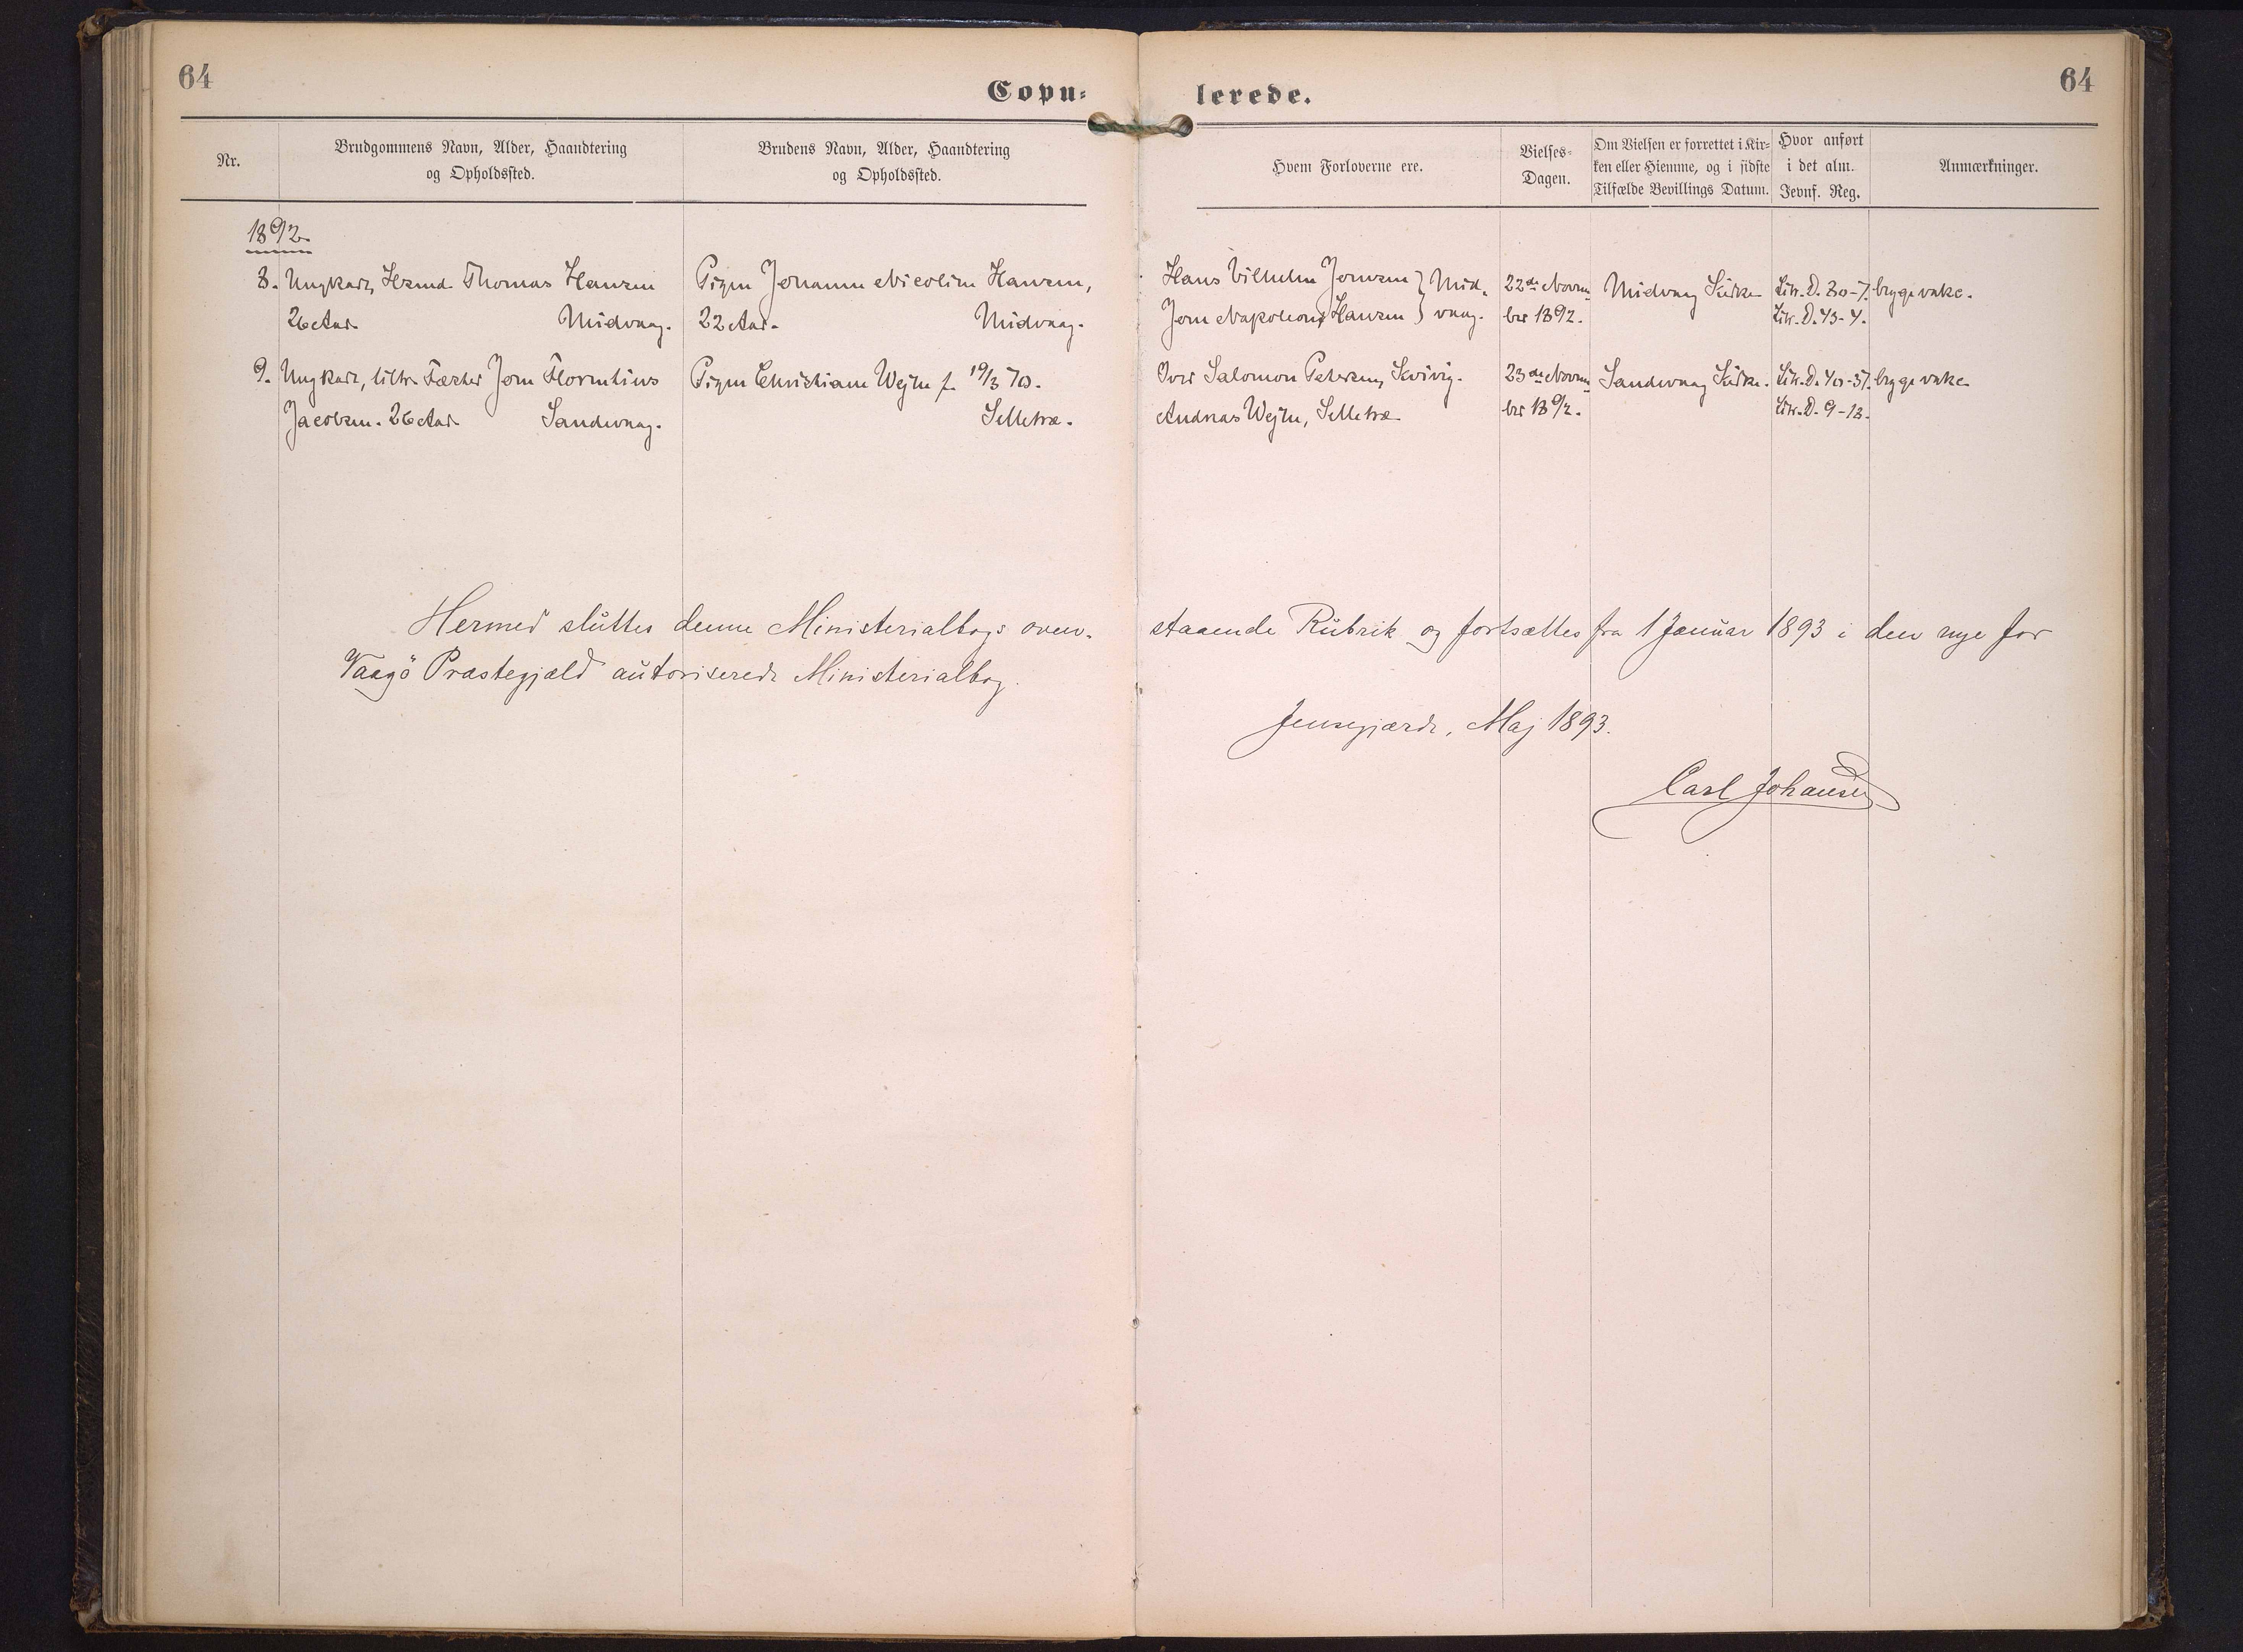 64
Copu-
lerede.
64
Nr.
Brudgommens Navn, Alder, Haandtering
og Opholdssted.
Brudens Navn, Alder, Haandtering
og Opholdssted.
Hvem Forloverne ere.
Vielses-
Dagen.
Om Vielsen er forrettet i Kir-
ken eller Hiemme, og i sidste
Tilfælde Bevillings Datum.
Hvor anført
i det alm.
Jevnf. Reg.
Anmærkninger.
1892
8. Ungkarl, Thomas Hansen
26 Aar. Midvaag.
Pigen Johanne Nicoline Hansen,
22 Aar. Midvaag.
Hans Vilhelm Joensen } Mid-
Joen Napoleon Hansen } vaag.
22de Novem
ber 1892.
Midvaag Kirke
Litr. D. 30-7.
Litr. D. 43-4.
9. Ungkarl, Joen Florentius
Jacobsen. 26 Aar. Sandevaag.
Pigen Christiane Wejhe f. 19/3 70.
Selletræ.
Salomon Petersen, Kvivig.
Andreas Wejhe, Selletræ
23de Novem
ber 1892.
Sandevaag Kirke.
Litr. D. 40-37.
Litr. D. 9-13.
Hermed sluttes denne Ministerialbogs oven-
staaende Rubrik og fortsættes fra 1 Januar 1893 i den nye for
Vaagö Præstegjæld autoriserede Ministerialbog.
Jensegjærde, Maj 1893.
Carl Johansen